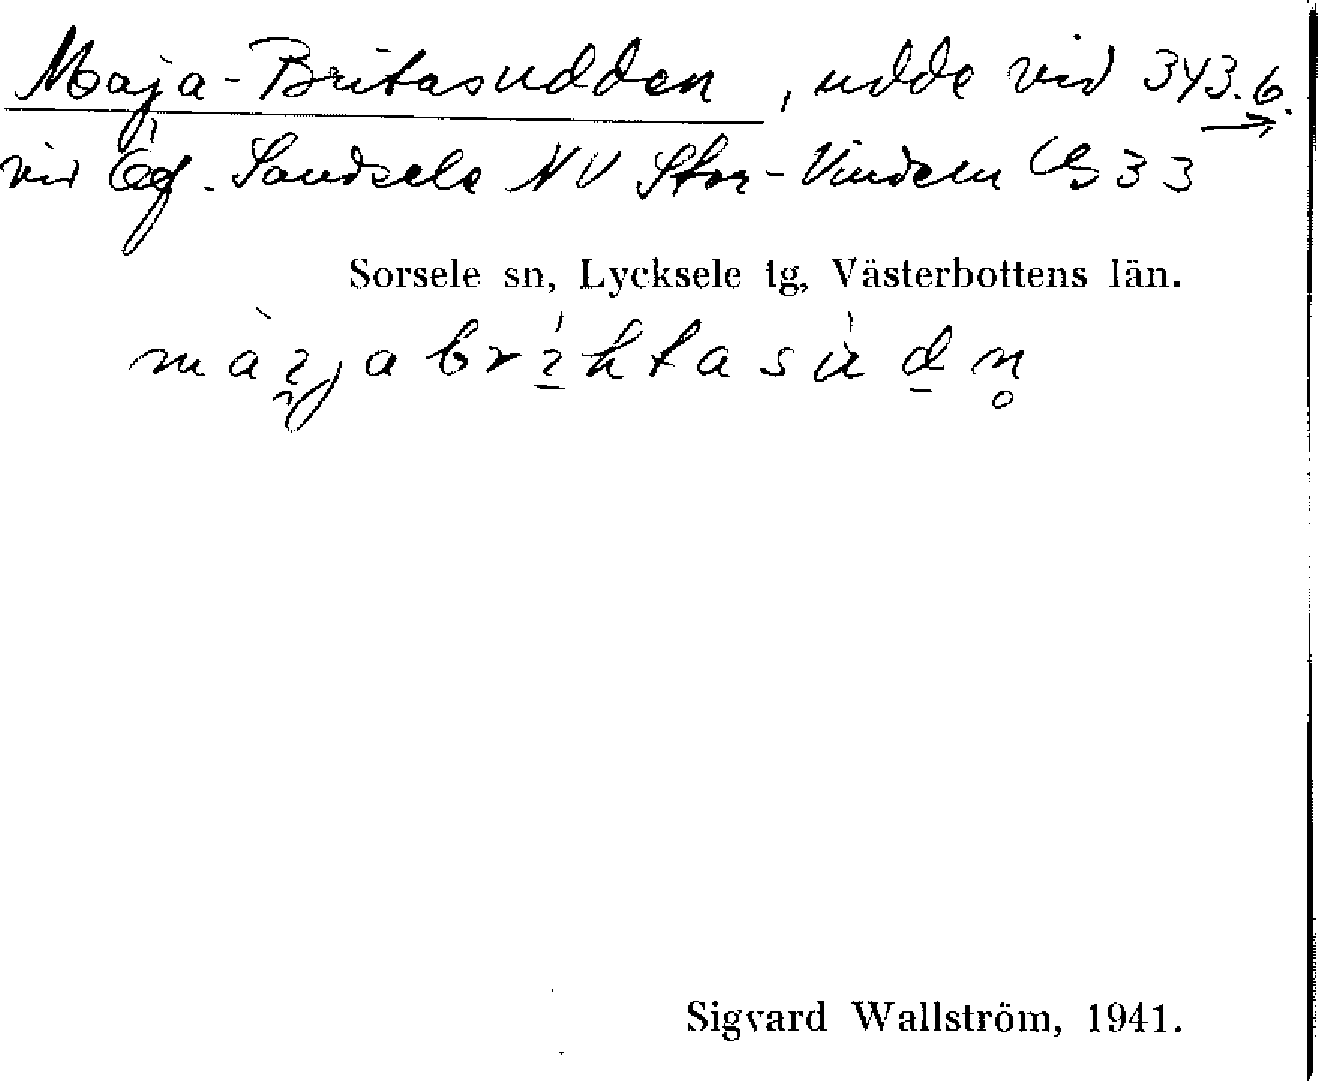 Maja-Britasudden, udde vid 343.6.
vid Äg. Sandsele NV Stor-Vindeln B33
Sorsele sn, Lycksele tg, Västerbottens län.
Sigvard Wallström, 1941.